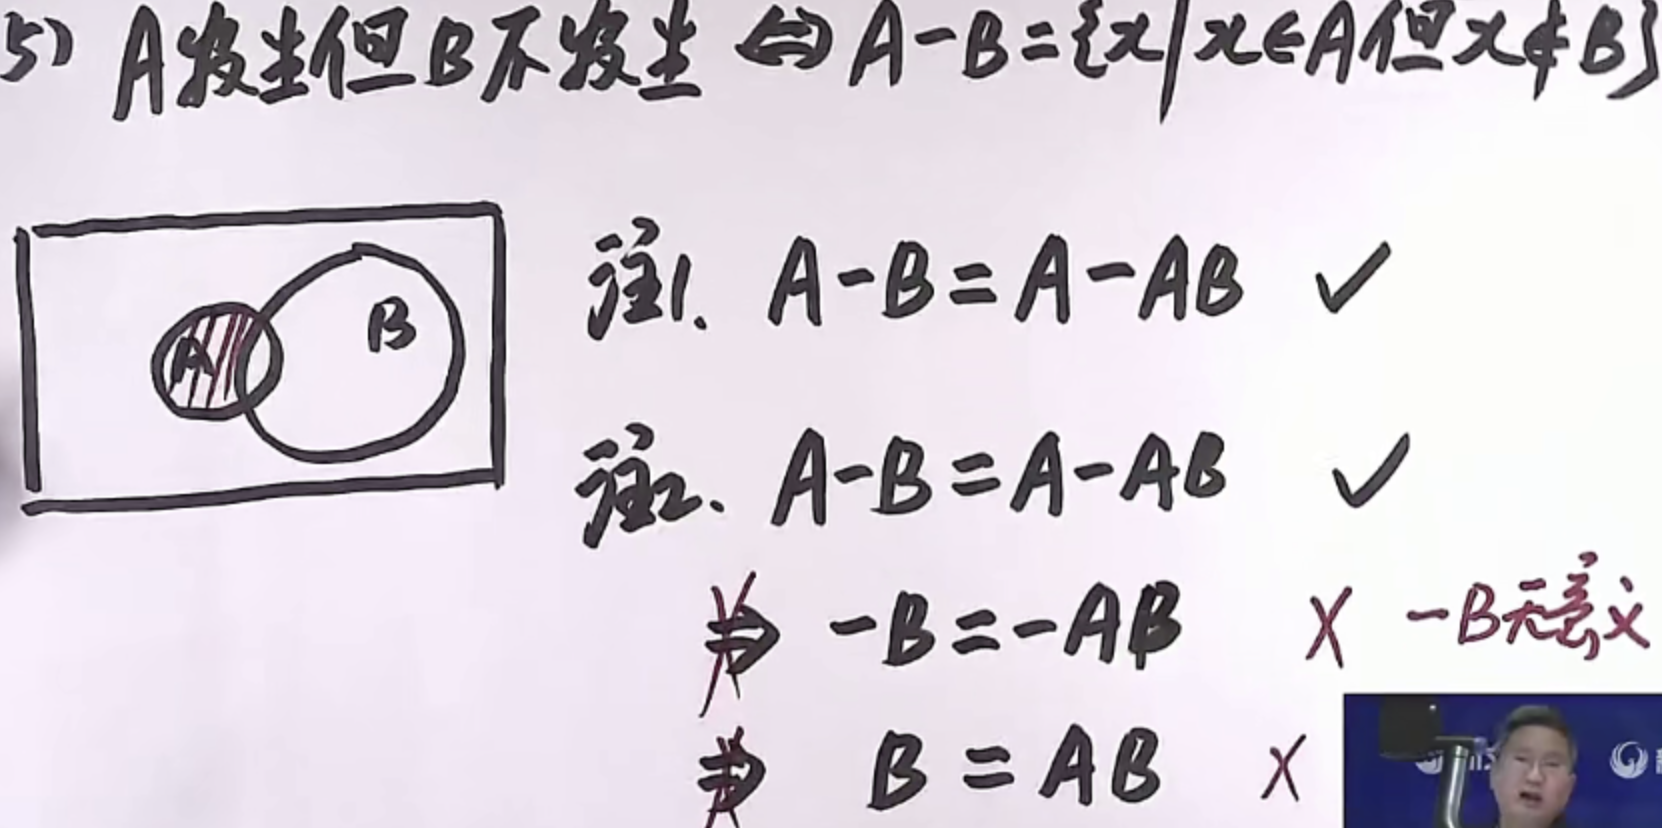 5) A发生但B不发生 ⇔ A-B={x|x∈A但x∉B}
A B
注1. A-B=A-AB ✓
注2. A-B=A-AB ✓
⇏ -B=-AB × -B无意义
⇏ B=AB ×